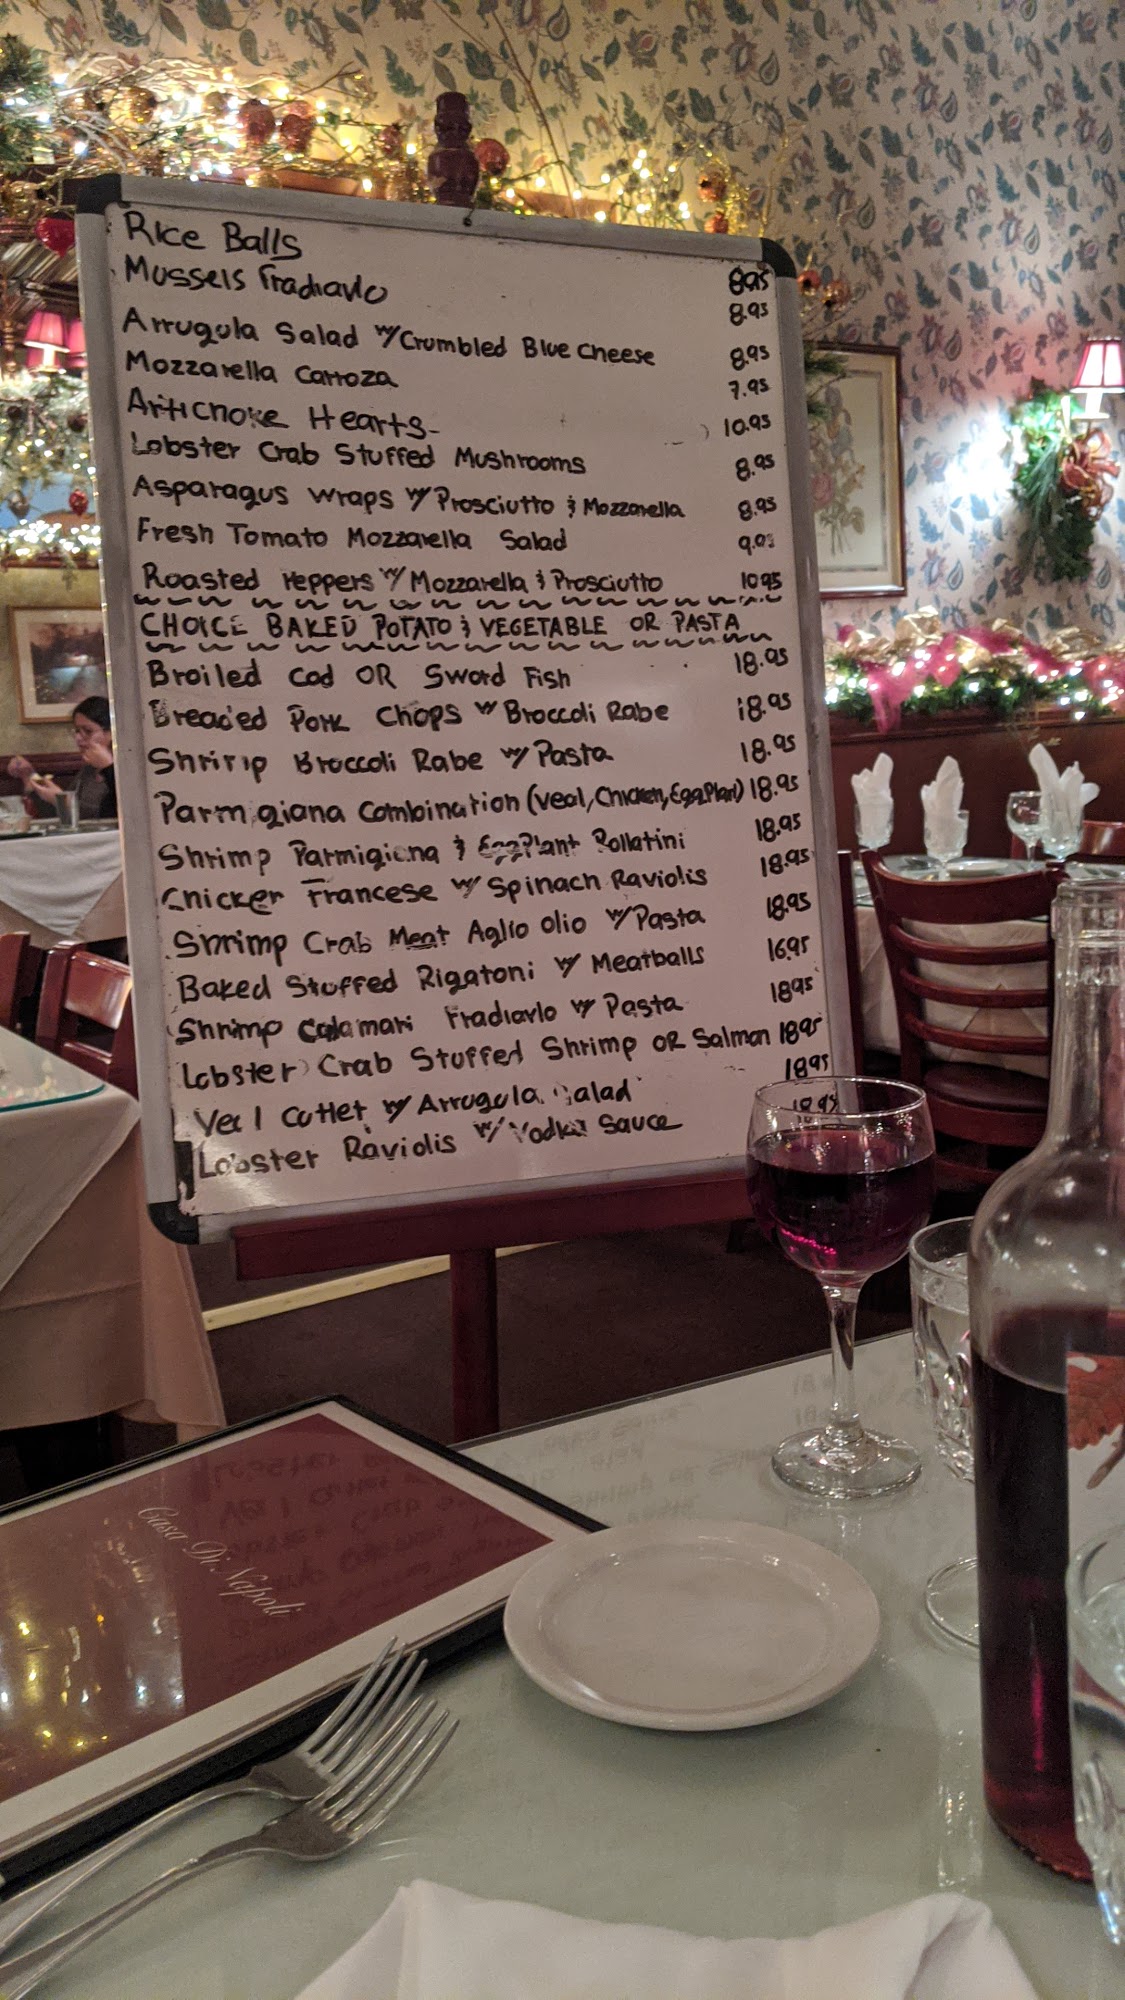 Rice Balls 8.95
Mussels Fradiavlo 8.95
Arrugula Salad w/ Crumbled Blue Cheese 8.95
Mozzarella Carroza 7.95
Artichoke Hearts 10.95
Lobster Crab Stuffed Mushrooms 8.95
Asparagus Wraps w/ Prosciutto & Mozzarella 8.95
Fresh Tomato Mozzarella Salad
Roasted Peppers w/ Mozzarella & Prosciutto 10.95
CHOICE BAKED POTATO & VEGETABLE OR PASTA
Broiled Cod OR Sword Fish 18.95
Breaded Pork Chops w/ Broccoli Rabe 18.95
Shrimp Broccoli Rabe w/ Pasta 18.95
Parmigiana Combination (Veal, Chicken, EggPlant) 18.95
Shrimp Parmigiana & EggPlant Rollatini 18.95
Chicken Francese w/ Spinach Raviolis 18.95
Shrimp Crab Meat Aglio olio w/ Pasta 18.95
Baked Stuffed Rigatoni w/ Meatballs 16.95
Shrimp Calamari Fradiavlo w/ Pasta 18.95
Lobster Crab Stuffed Shrimp OR Salmon 18.95
Veal Cutlet w/ Arrugula Salad 18.95
Lobster Raviolis w/ Vodka Sauce 18.95
Casa Di Napoli